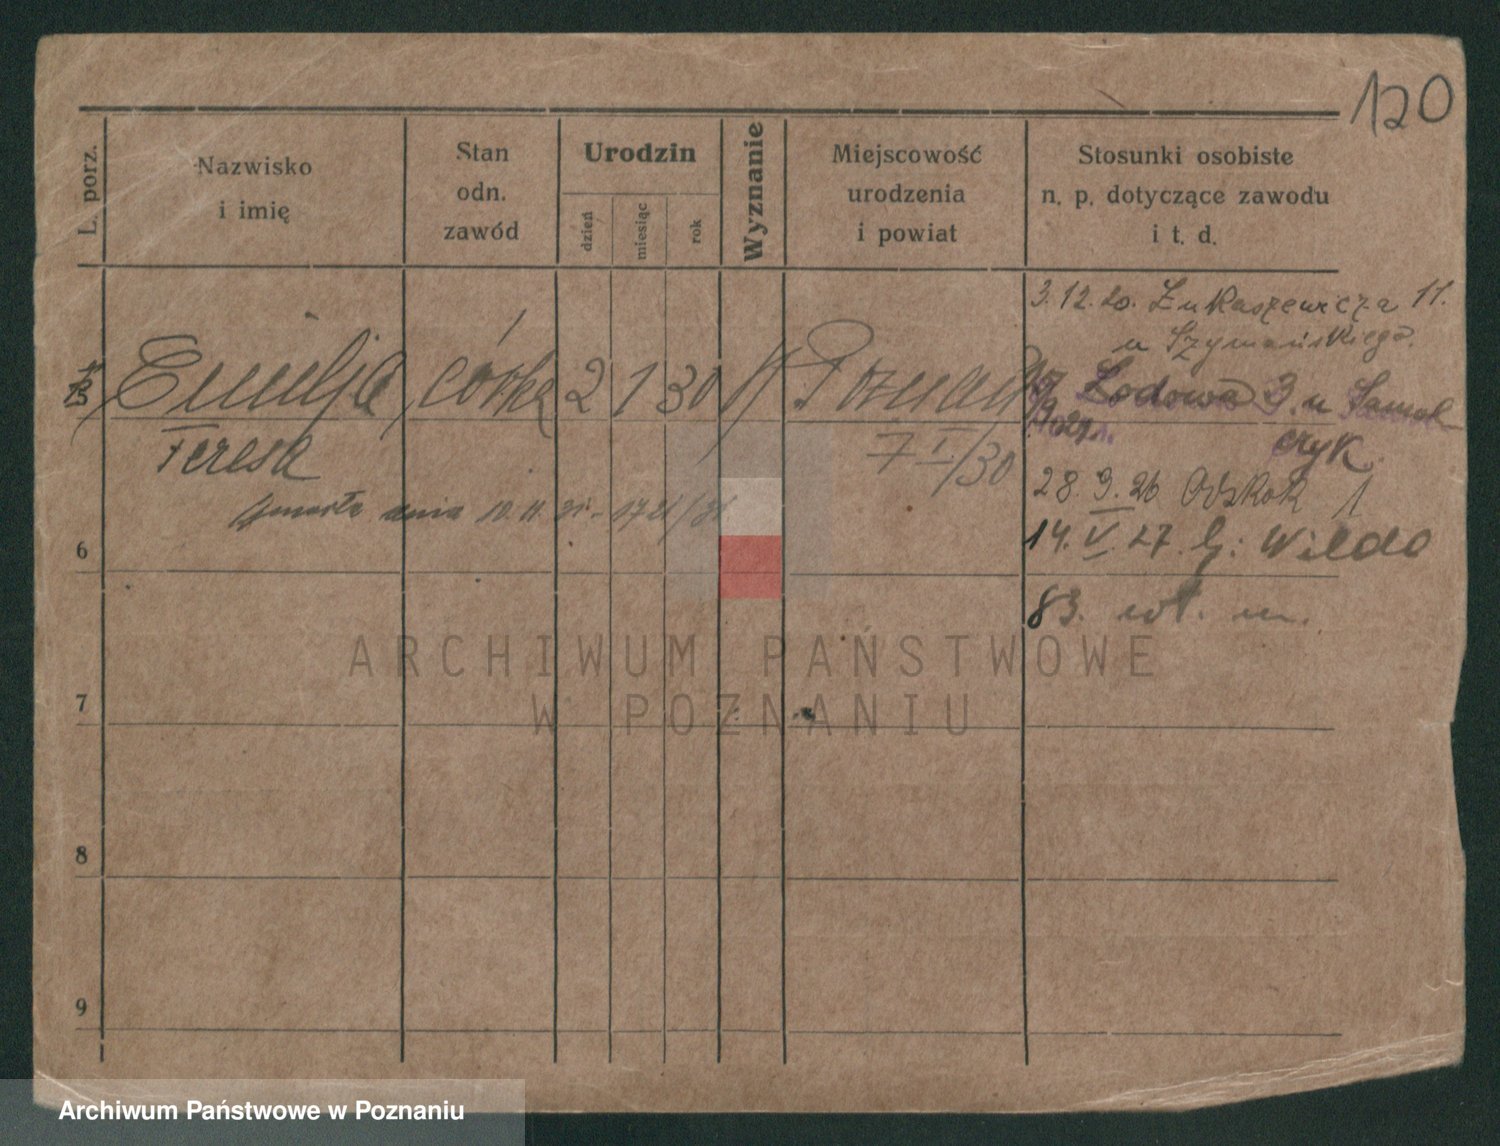 120
L. porz.
Nazwisko
i imię
Stan
odn.
zawód
Urodzin
dzień
miesiąc
rok
Wyznanie
Miejscowość
urodzenia
i powiat
Stosunki osobiste
n. p. dotyczące zawodu
i t. d.
3.12.20. Łukaszewicza 11.
u Szymańskiego.
5 Emilja córka 2 1 30 K Poznań
Lodowa 3. u Samol
czyk
Teresa
7 I/30
zmarła dnia 10.11.31 - 1721/31
28.9.26 Odskok 1
14.V.27. Wilda
83.
6
7
8
9
ARCHIWUM PAŃSTWOWE
W POZNANIU
Archiwum Państwowe w Poznaniu